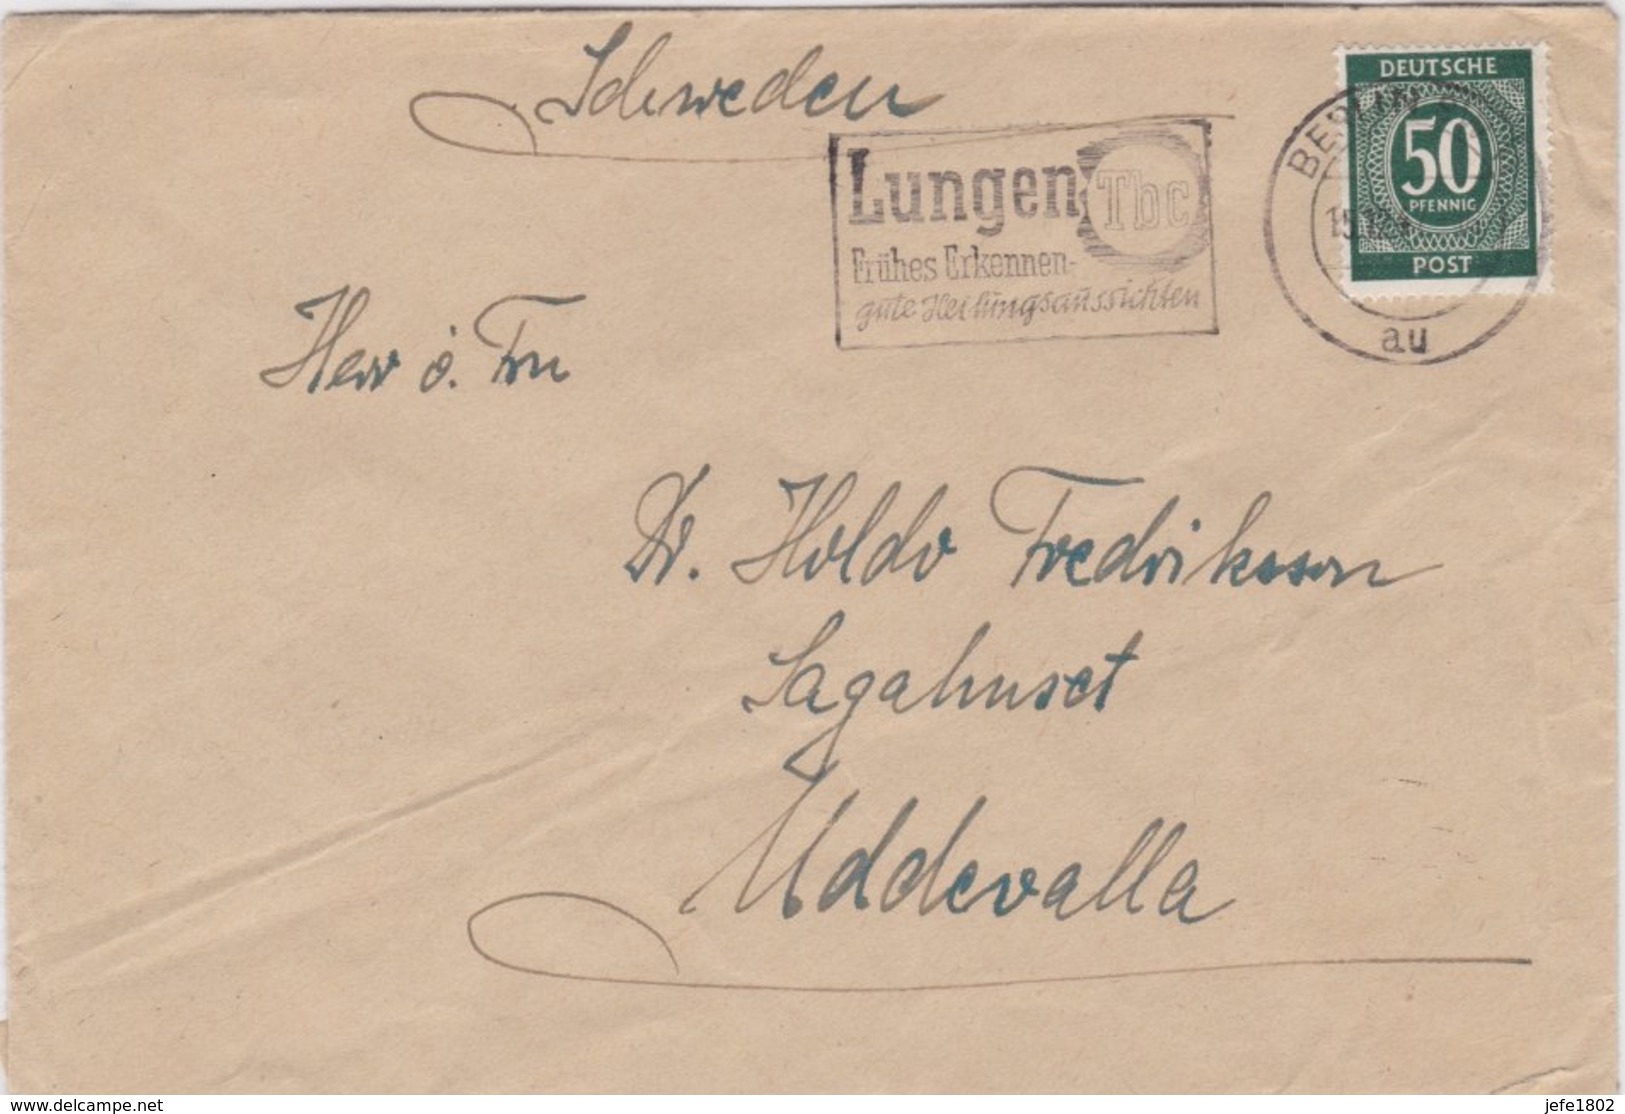 Schweden
DEUTSCHE
50
PFENNIG
POST
Lungen Tbc
Frühes Erkennen-
gute Heilungsaussichten
BERLIN
au
Herr o. Fru
Dr. Holdo Fredriksson
Sagahuset
Uddevalla
www.delcampe.net
jefe1802